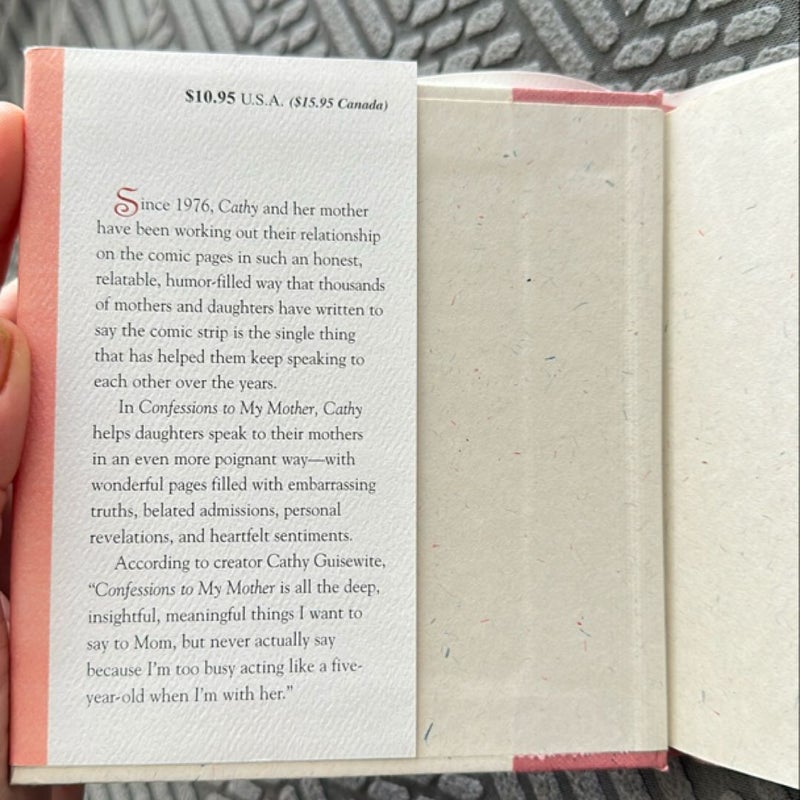 $10.95 U.S.A. ($15.95 Canada)
Since 1976, Cathy and her mother
have been working out their relationship
on the comic pages in such an honest,
relatable, humor-filled way that thousands
of mothers and daughters have written to
say the comic strip is the single thing
that has helped them keep speaking to
each other over the years.
In Confessions to My Mother, Cathy
helps daughters speak to their mothers
in an even more poignant way—with
wonderful pages filled with embarrassing
truths, belated admissions, personal
revelations, and heartfelt sentiments.
According to creator Cathy Guisewite,
“Confessions to My Mother is all the deep,
insightful, meaningful things I want to
say to Mom, but never actually say
because I’m too busy acting like a five-
year-old when I’m with her.”